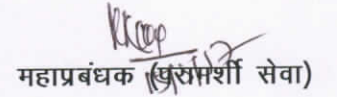 महाप्रबंधक (परामर्शी सेवा)